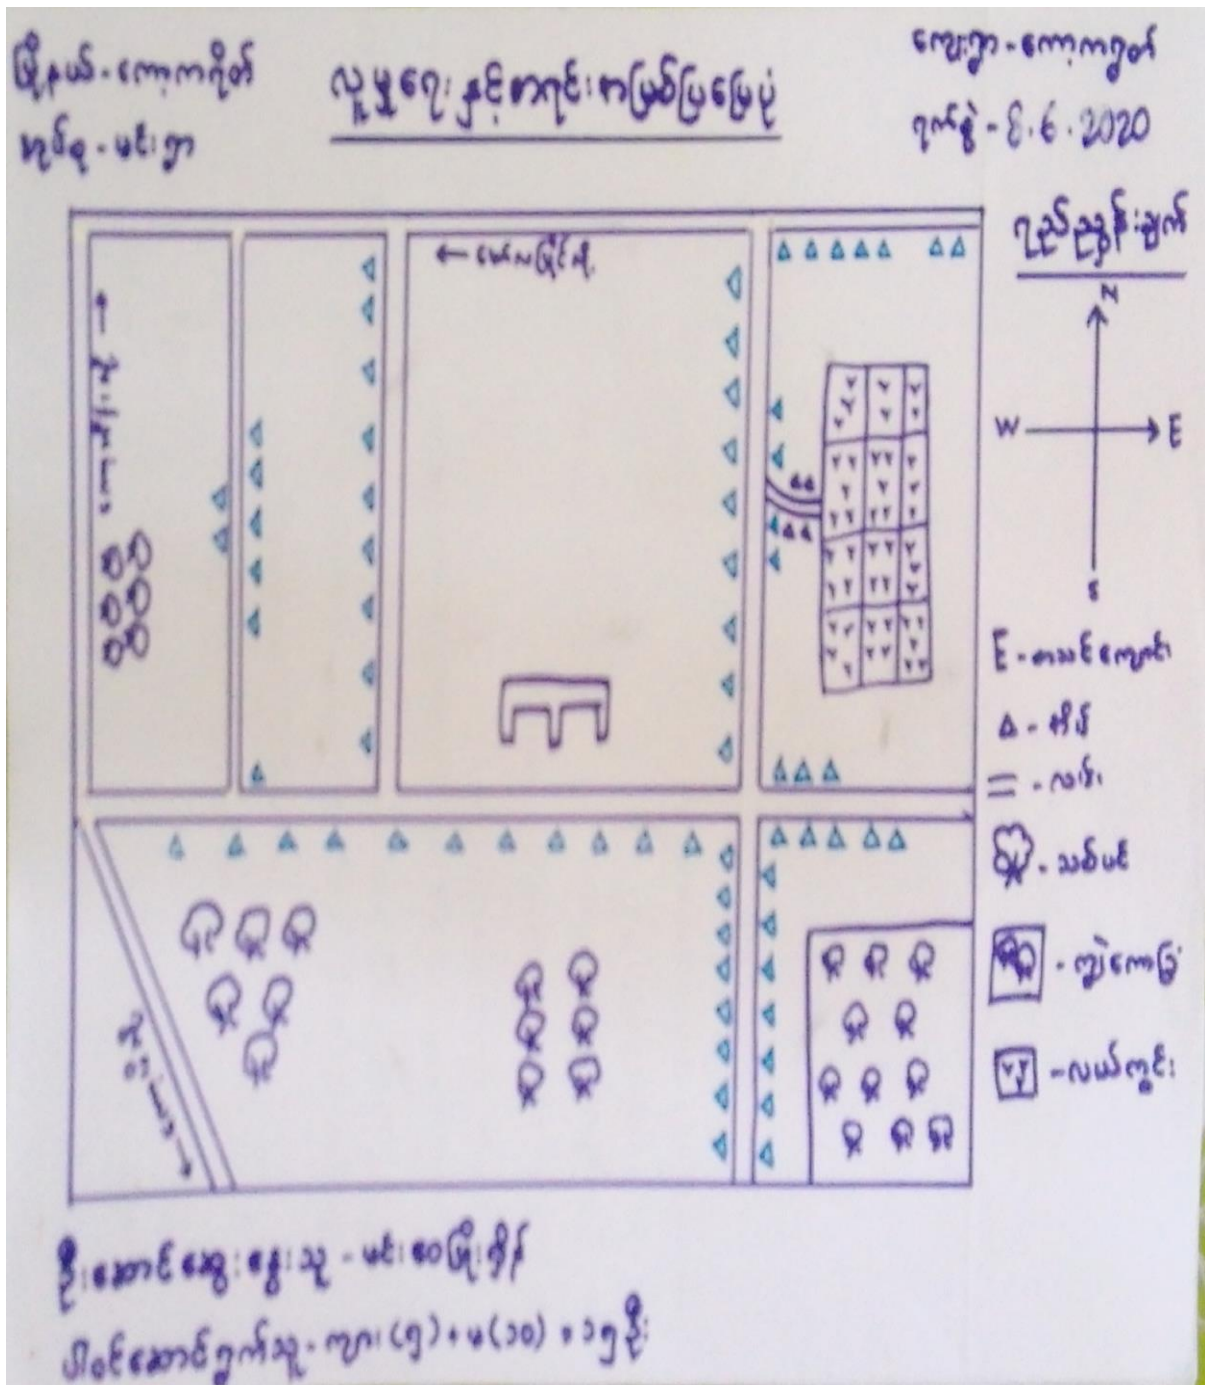 မြို့နယ် - ကော့ကရိတ်
အုပ်စု - မင်းရွာ
လူမှုရေးနှင့်စာရင်းအမြစ်ပြမြေပုံ
ကျေးရွာ - ကော့ကရွတ်
ရက်စွဲ - 8.6.2020
ရည်ညွှန်းချက်
N
W
E
S
E - စာသင်ကျောင်း
Δ - အိမ်
= - လမ်း
- သစ်ပင်
- ကျွဲကောခြံ
- လယ်ကွင်း
ဦးဆောင်ဆွေးနွေးသူ - မင်းဝေဖြိုးကိုန်
ပါဝင်ဆောင်ရွက်သူ - ကျား (၅) + မ (၁၀) = ၁၅ ဦး